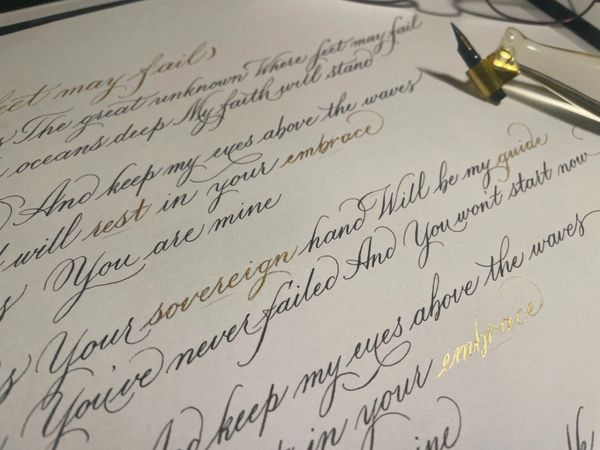 feet may fail,
The great unknown Where feet may fail
oceans deep My faith will stand
And keep my eyes above the waves
will rest in your embrace
You are mine
Your sovereign hand Will be my guide
You've never failed And You won't start now
And keep my eyes above the waves
in your embrace
mine